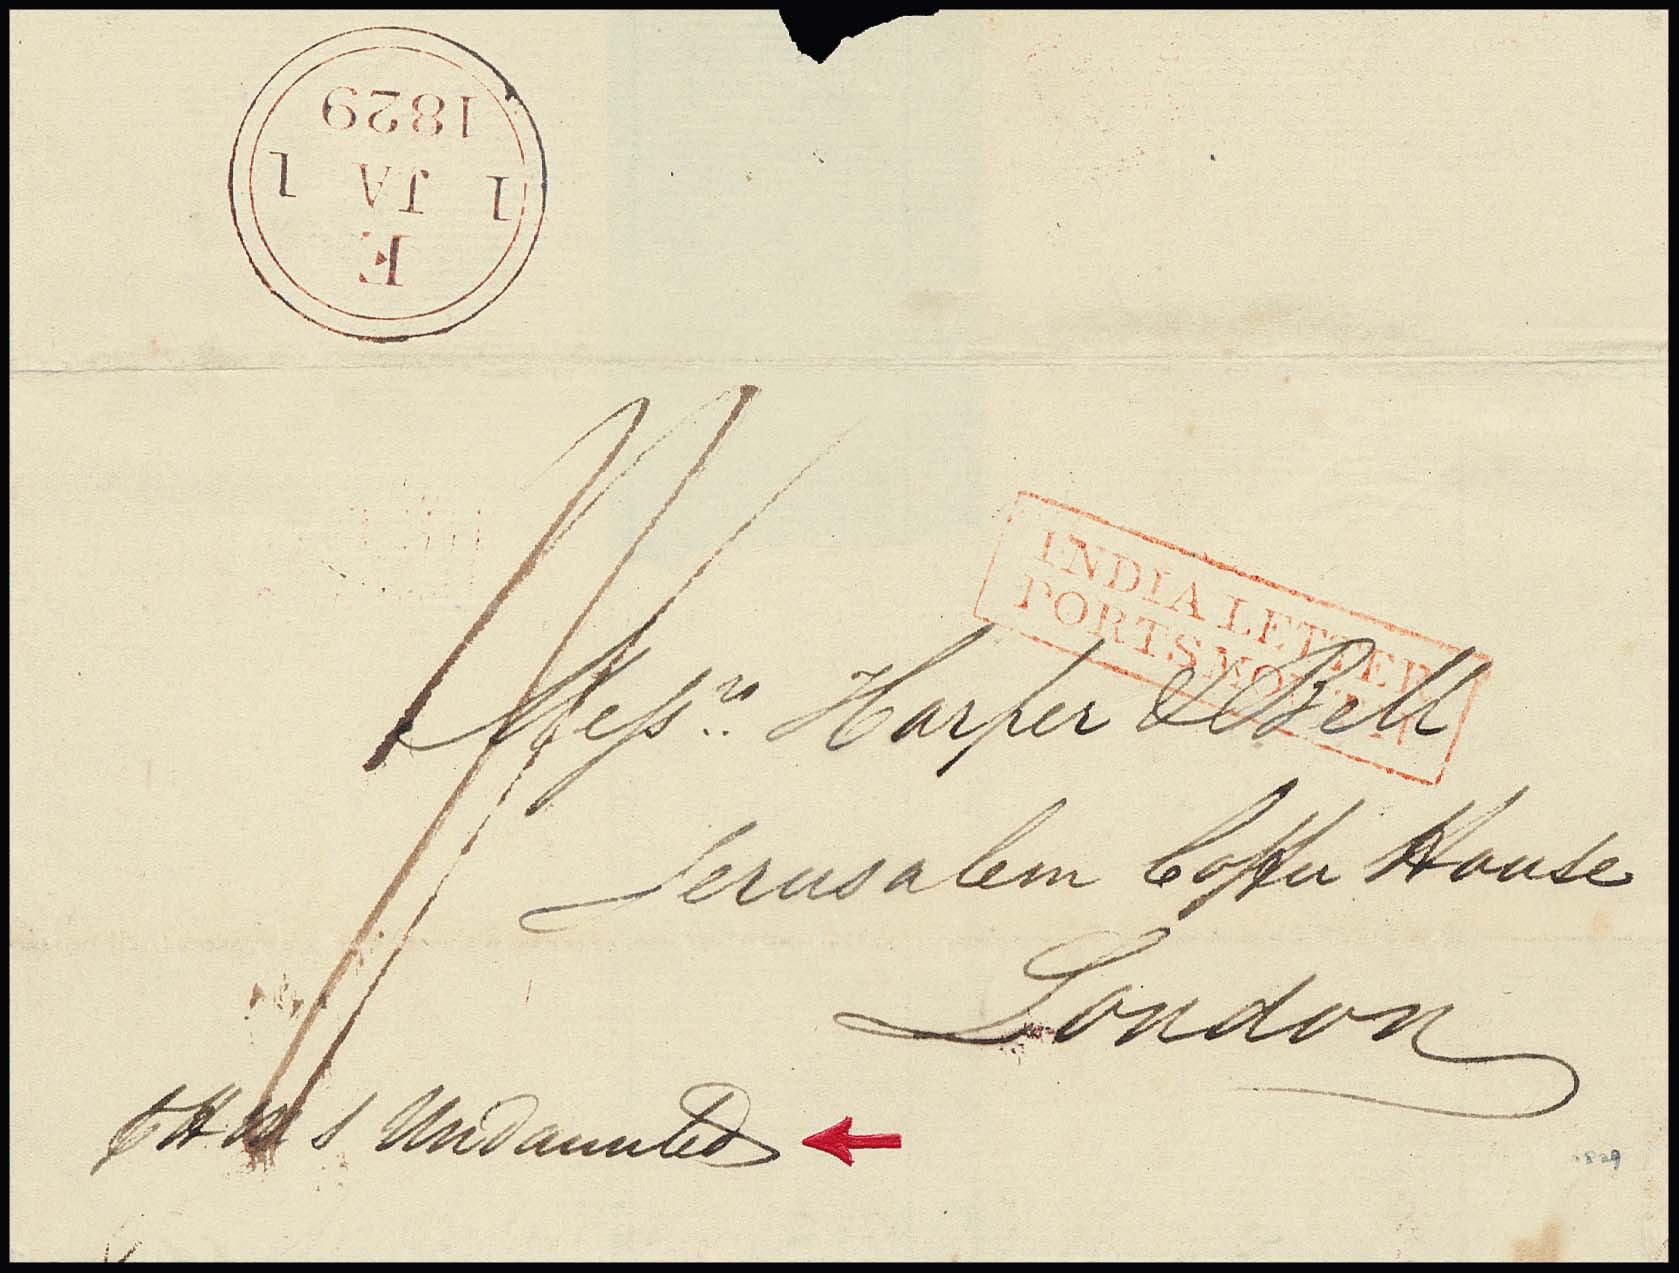 1829
1 JA 1
F
INDIA LETTER
PORTSMOUTH
Messrs. Harper & Bell
Jerusalem Coffee House
London
HMS Undaunted
1829